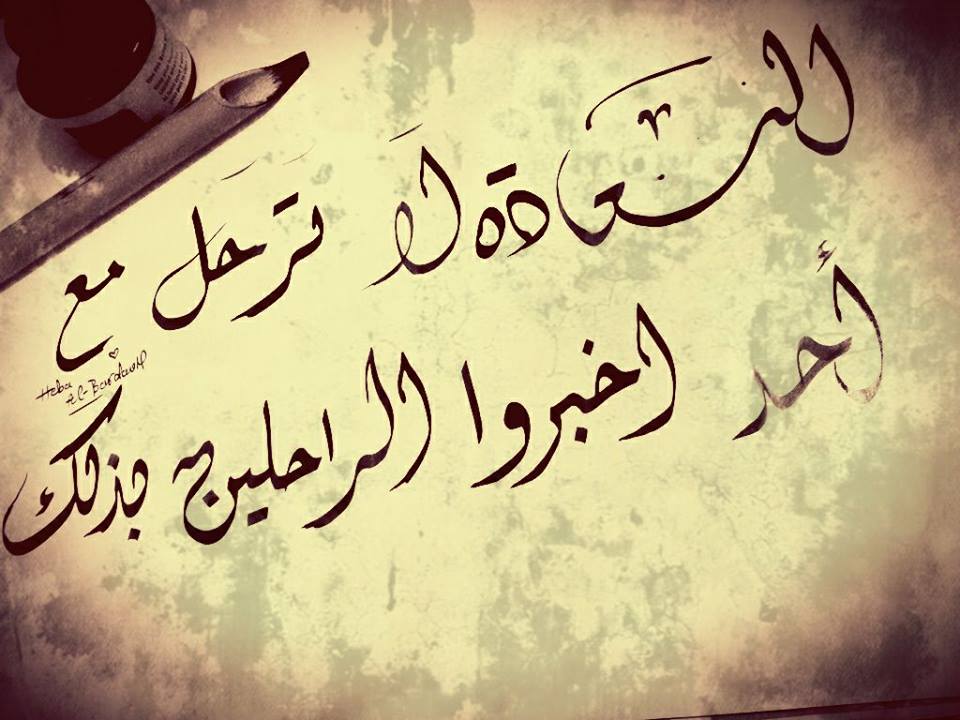 السعادة لا ترحل مع
أحد اخبروا الراحلين بذلك
Heba
el-Bardawil